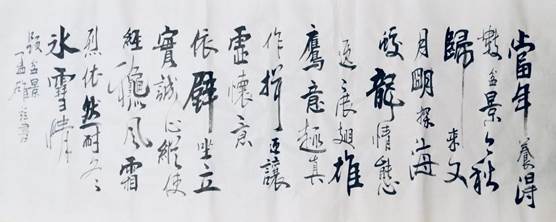 當年養得
數盆景今秋
歸來又
月明探海
蛟龍情態
逼展翅雄
鷹意趣真
作揖讓
虛懷意
依壁坐立
實誠心縱使
經風霜
烈依然耐冬
冰雪情
題盆景